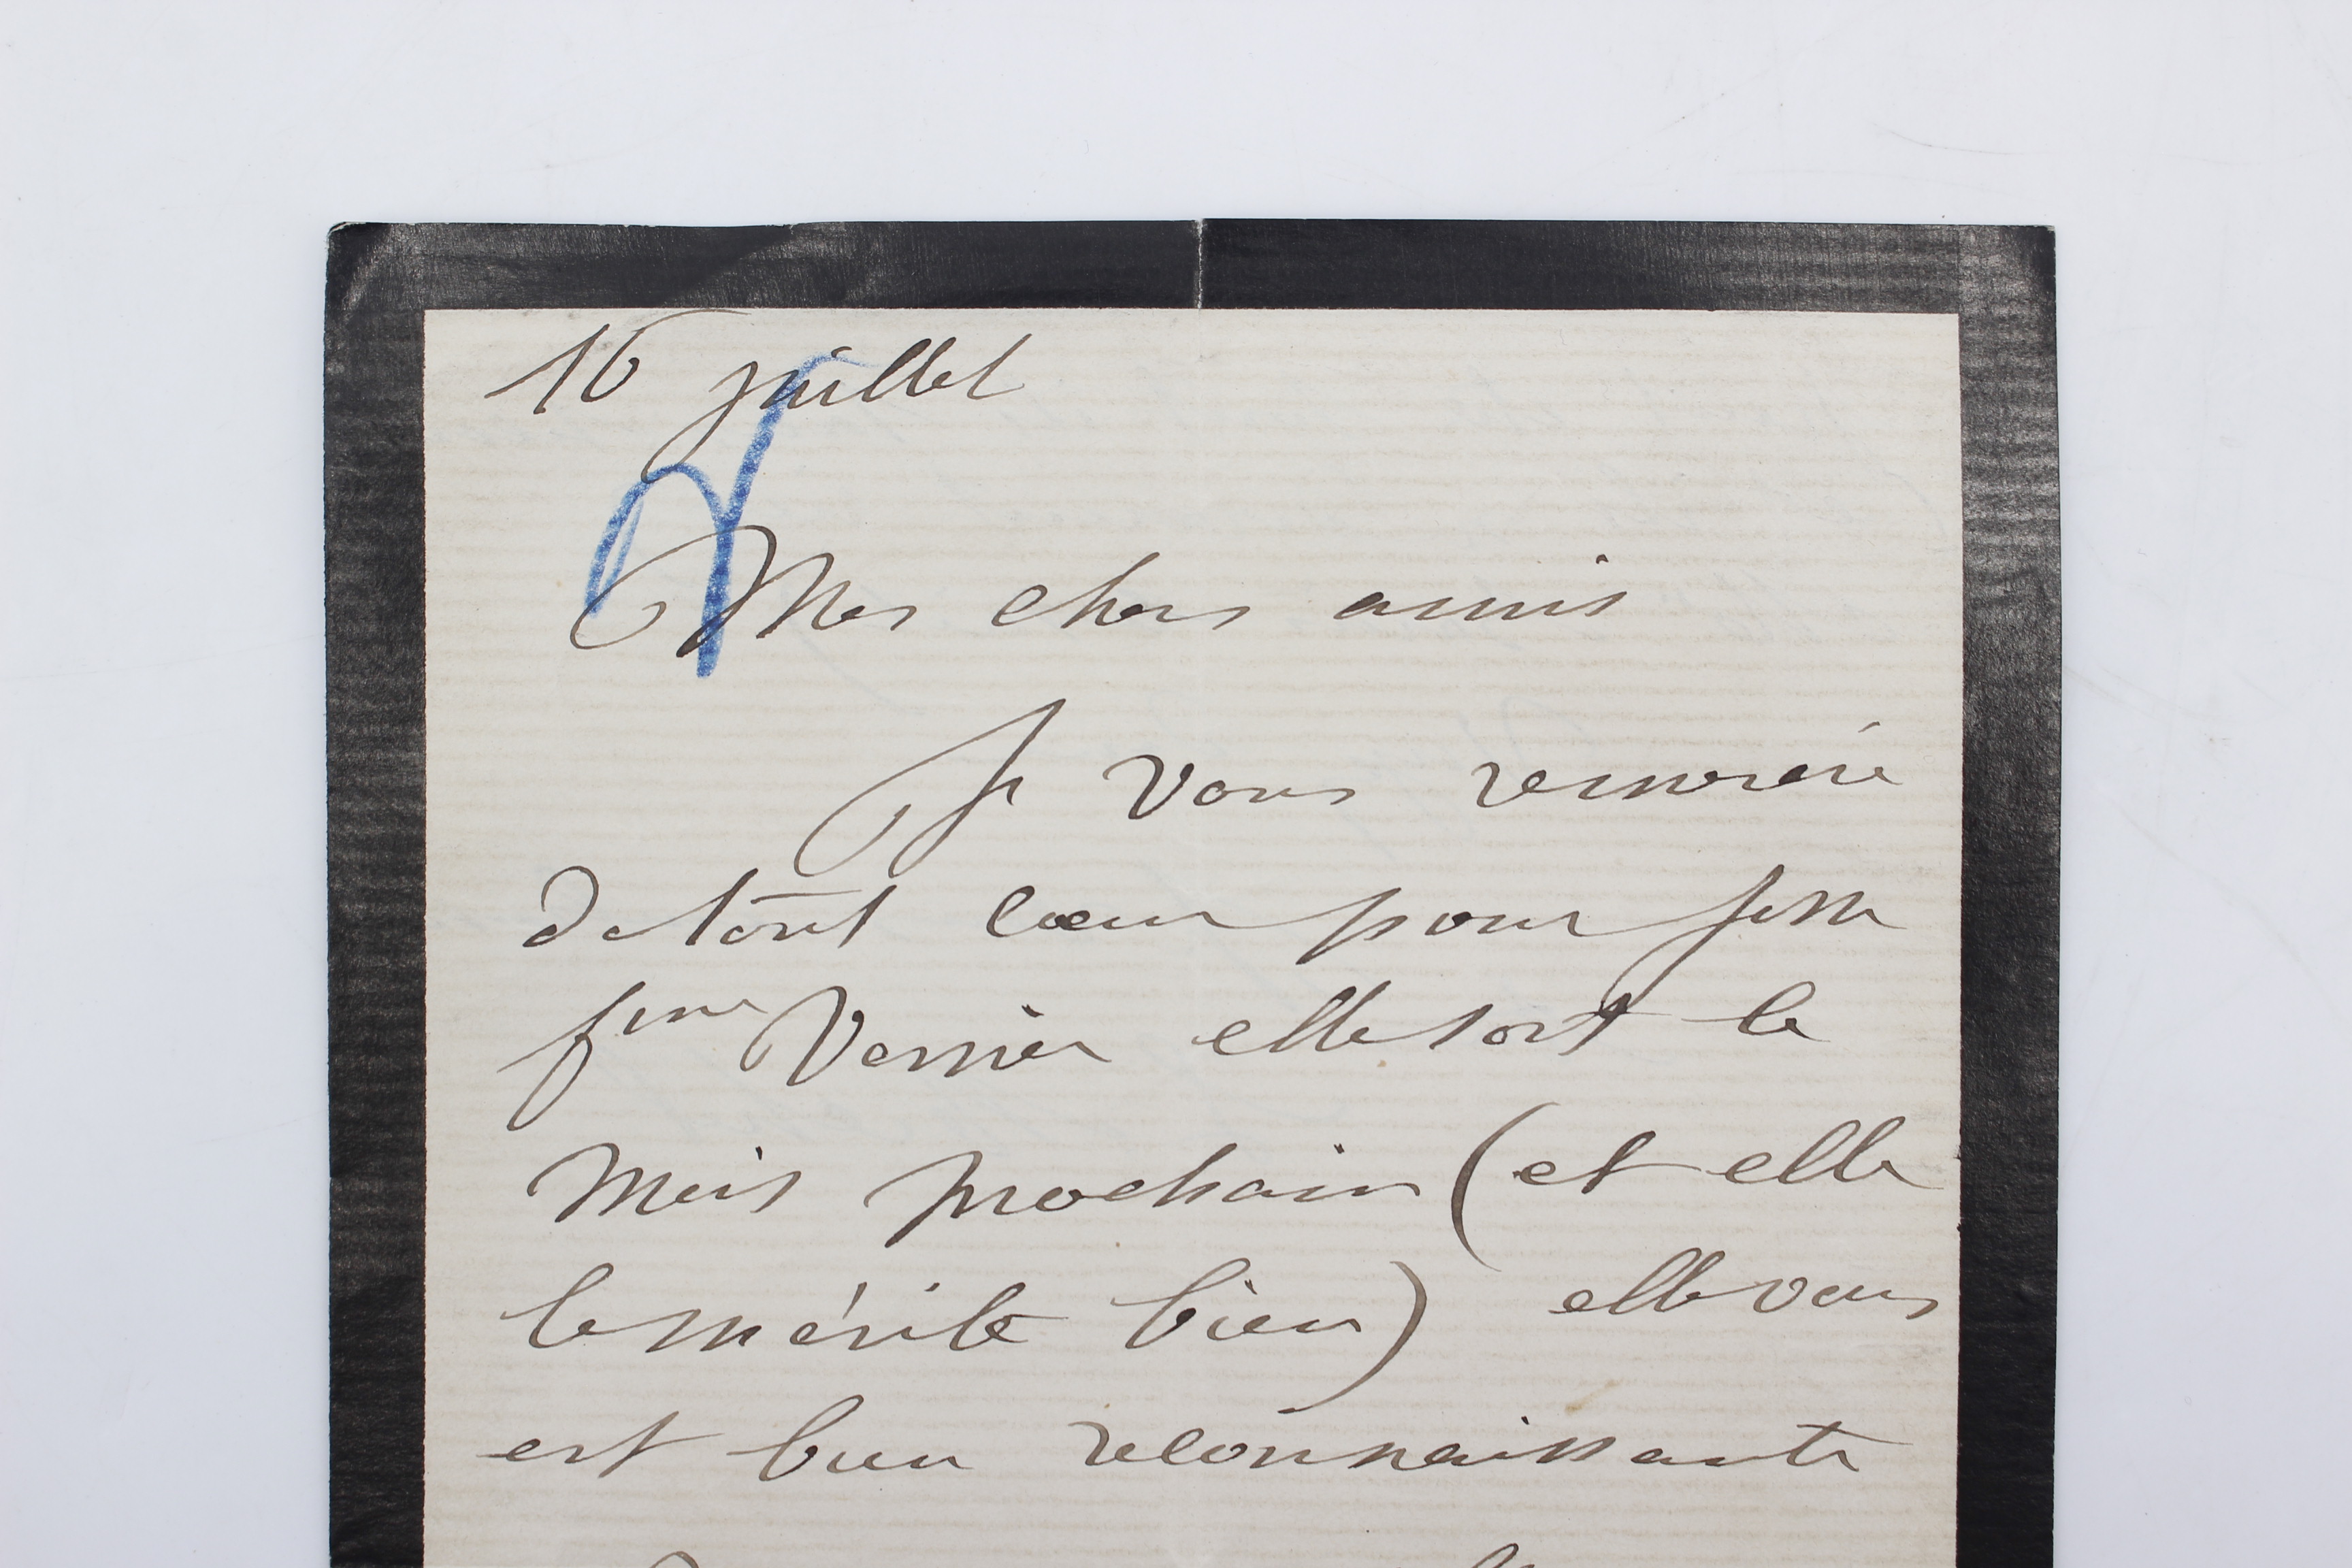 16 juillet
Mes chers amis
Je vous remercie
de tout cœur pour
Verrier elle sort le
mois prochain (et elle
le mérite bien) elle vous
est bien reconnaissante